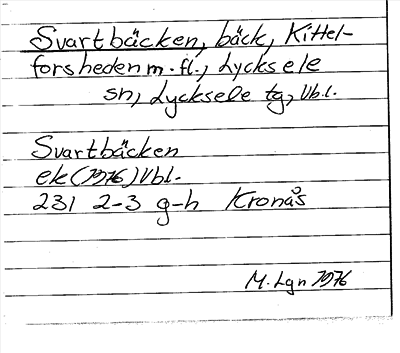 Svartbäcken, bäck, Kittel-
forsheden m.fl., Lycksele
sn, Lycksele tg, Vb.l.
Svartbäcken
ek (1976) Vbl.
231 2-3 g-h Kronås
M. Lgn 1976